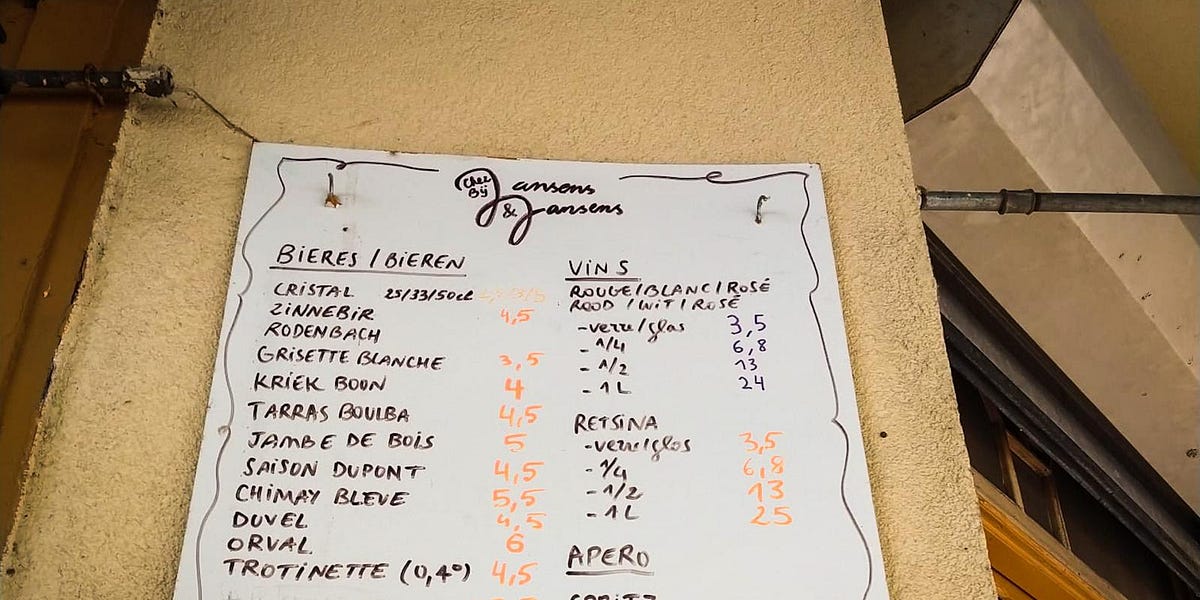 Chez Bij Jansens
& Jansens
BIERES / BIEREN
CRISTAL 25/33/50cl
ZINNEBIR 4,5
RODENBACH
GRISETTE BLANCHE 3,5
KRIEK BOON 4
TARRAS BOULBA 4,5
JAMBE DE BOIS 5
SAISON DUPONT 4,5
CHIMAY BLEUE 5,5
DUVEL 4,5
ORVAL 6
TROTINETTE (0,4°) 4,5
VINS
ROUGE/BLANC/ROSÉ
ROOD / WIT / ROSÉ
-verre/glas 3,5
- 1/4 6,8
- 1/2 13
- 1L 24
RETSINA
-verre/glas 3,5
- 1/4 6,8
- 1/2 13
- 1L 25
APERO